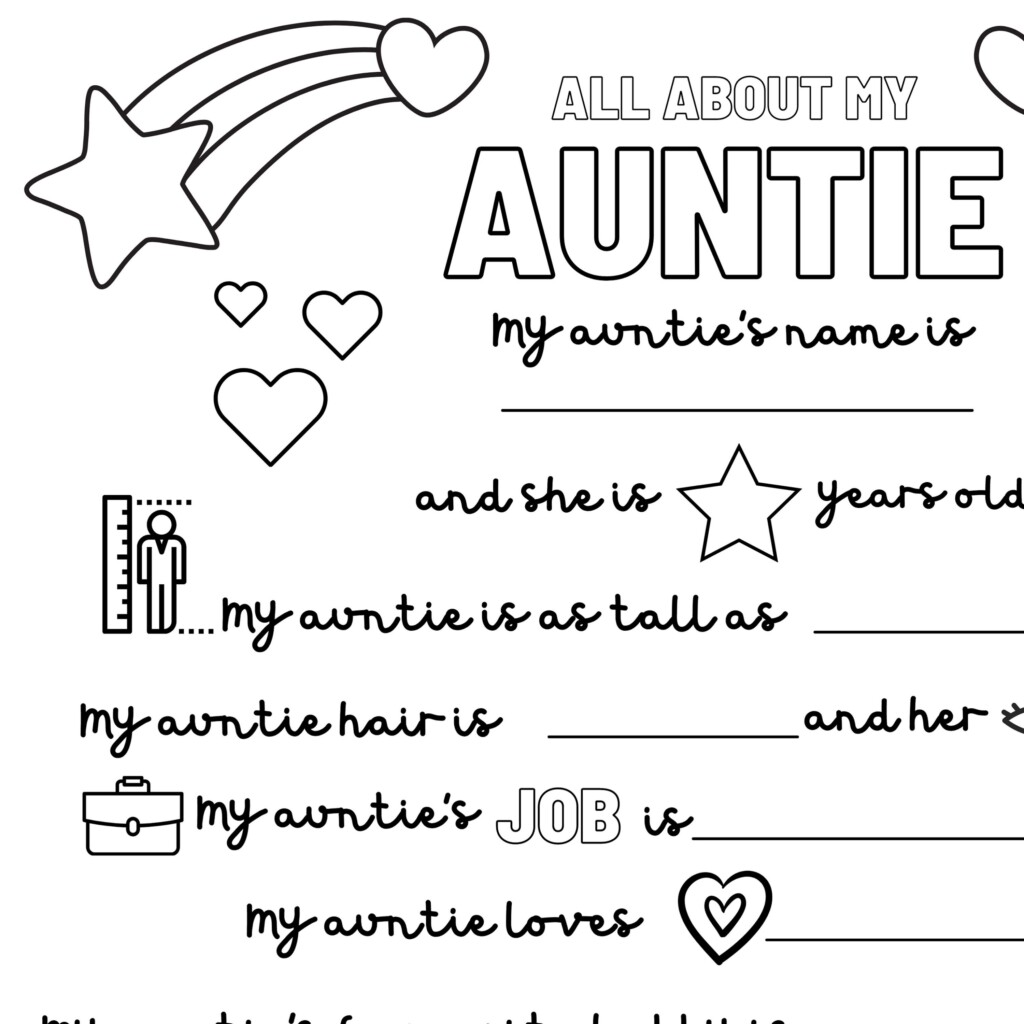 ALL ABOUT MY
AUNTIE
my auntie's name is
and she is years old
my auntie is as tall as
my auntie hair is and her
my auntie's JOB is
my auntie loves